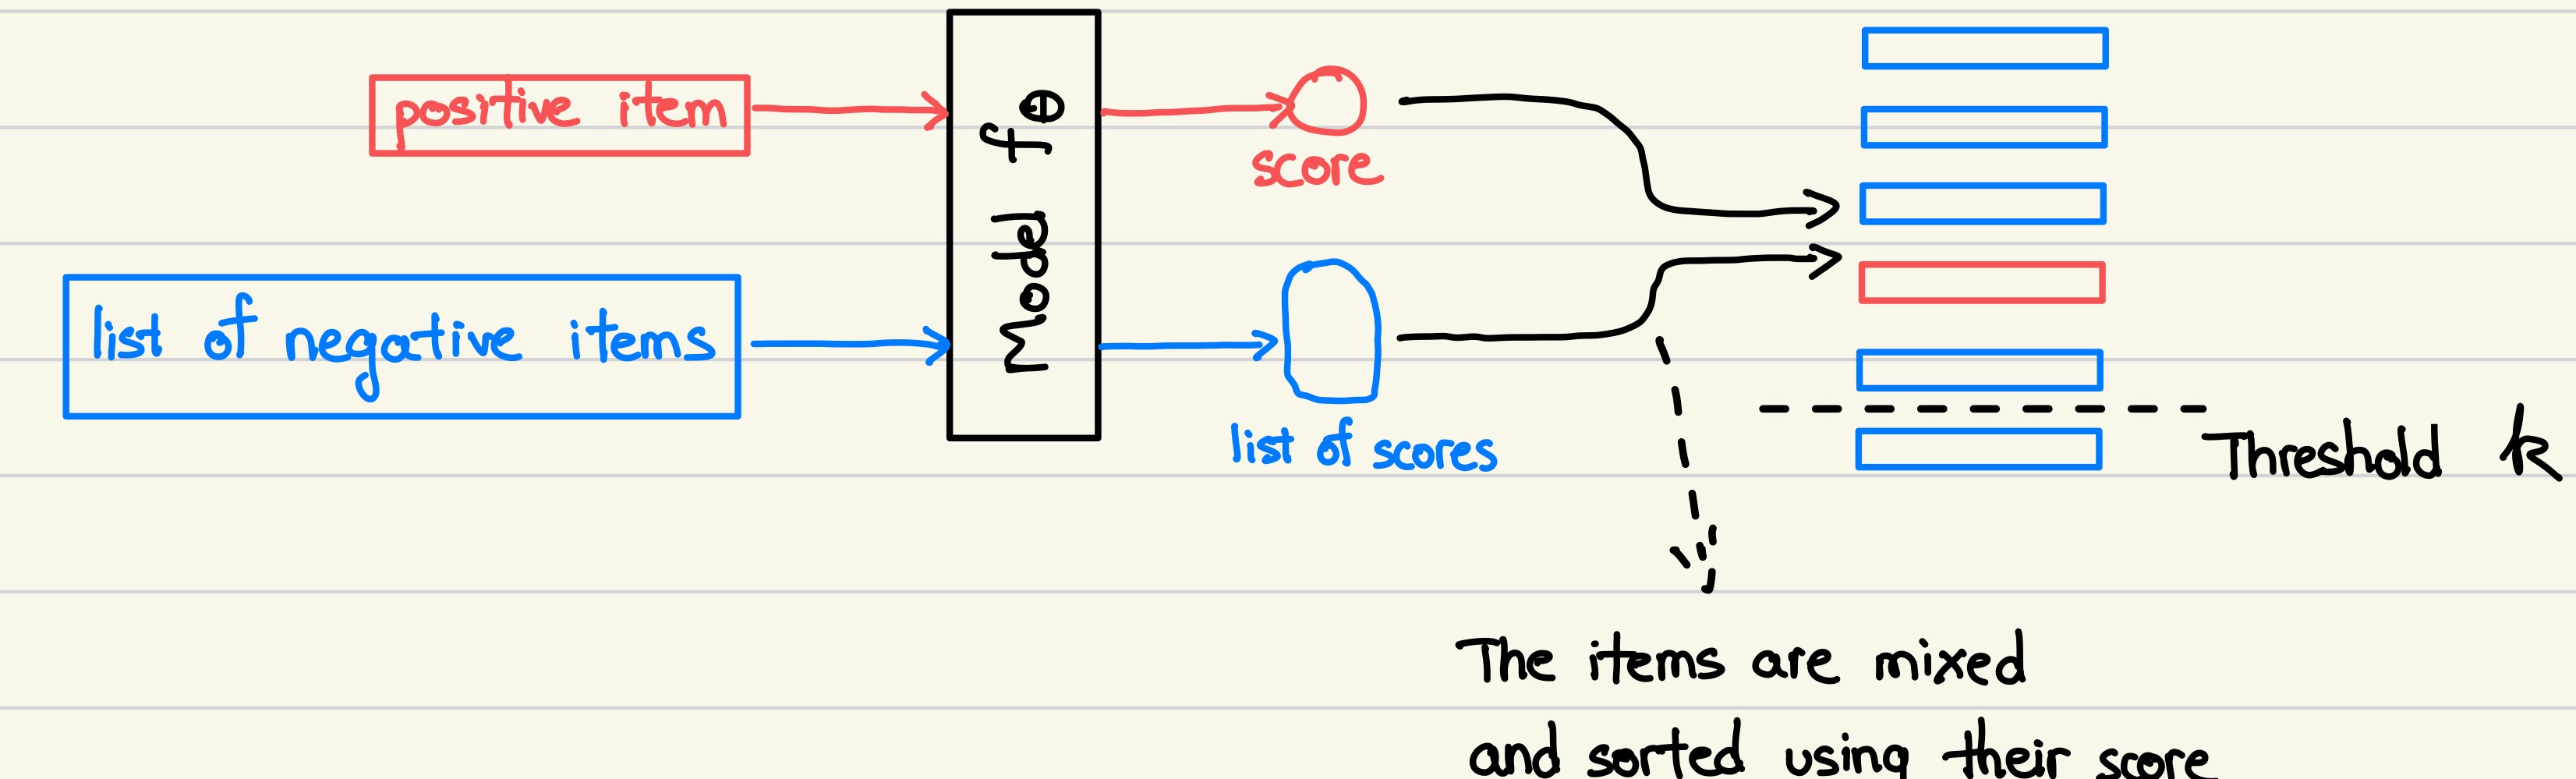 positive item
list of negative items
Model fθ
score
list of scores
Threshold k
The items are mixed
and sorted using their score